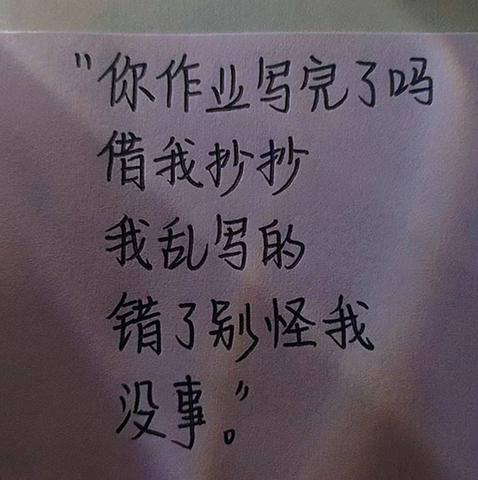 “你作业写完了吗
借我抄抄
我乱写的
错了别怪我
没事。”